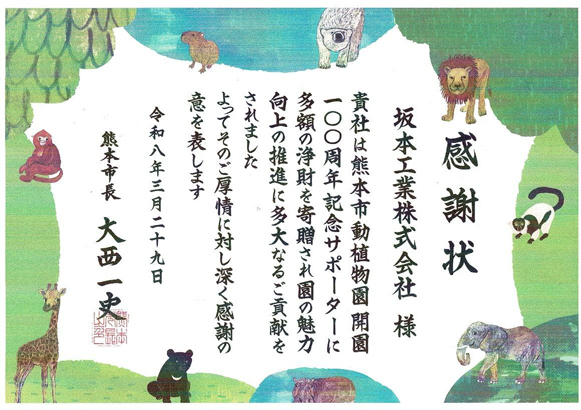 感謝状
坂本工業株式会社 様
貴社は熊本市動植物園 開園
一〇〇周年記念サポーターに
多額の浄財を寄贈され園の魅力
向上の推進に多大なるご貢献を
されました
よってそのご厚情に対し深く感謝の
意を表します
令和八年三月二十九日
熊本市長 大西一史